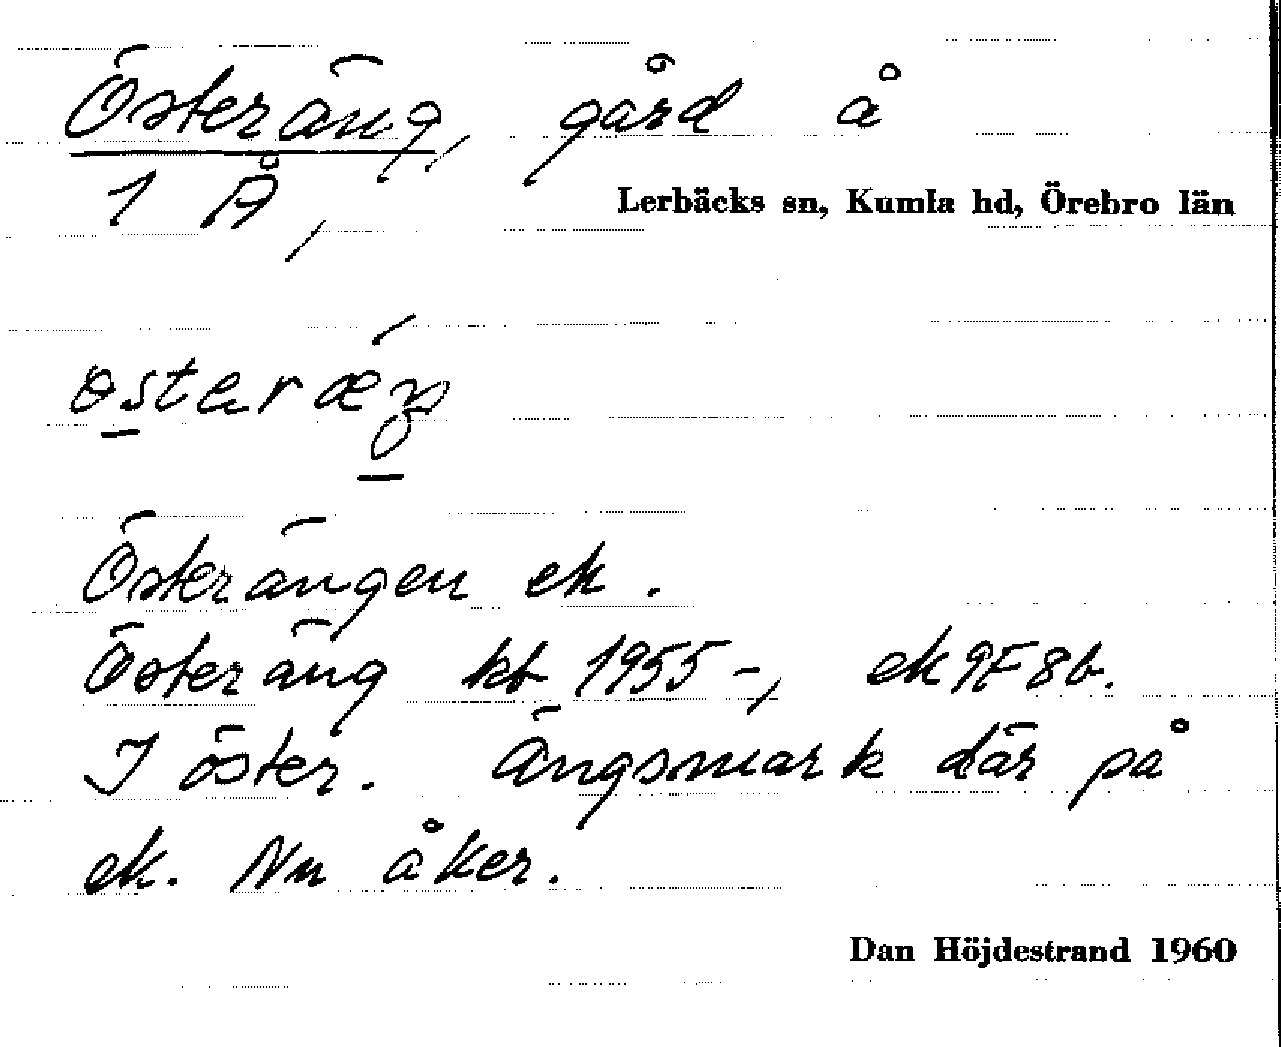 Österäng, gård å
1 Å,
Lerbäcks sn, Kumla hd, Örebro län
Österängen ek.
Österäng kb 1955-, ek 9F8b.
I öster. Ängsmark där på
ek. Nu åker.
Dan Höjdestrand 1960